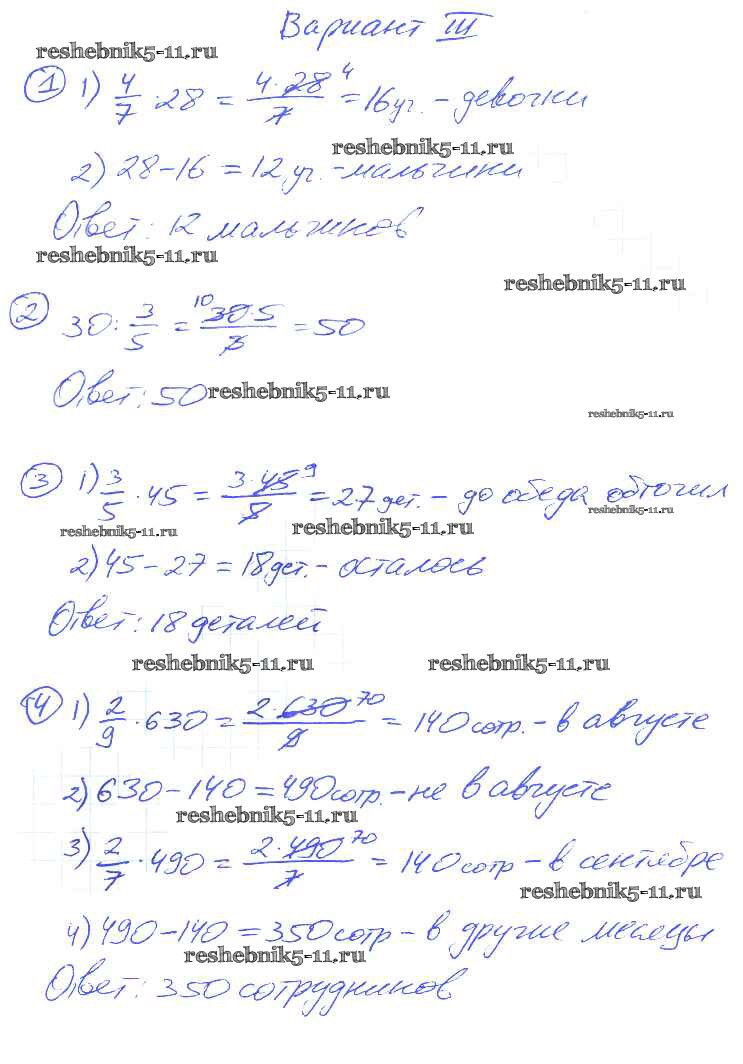 Вариант III
reshebnik5-11.ru
① 1) 4/7 · 28 = 4·28 4/7 = 16 уч. – девочки
reshebnik5-11.ru
2) 28 – 16 = 12 уч. – мальчики
Ответ: 12 мальчиков
reshebnik5-11.ru
reshebnik5-11.ru
② 30 : 3/5 = 10 30·5/3 = 50
Ответ: 50
reshebnik5-11.ru
reshebnik5-11.ru
③ 1) 3/5 · 45 = 3·45 9/5 = 27 дет. – до обеда обточил
reshebnik5-11.ru
reshebnik5-11.ru
reshebnik5-11.ru
2) 45 – 27 = 18 дет. – осталось
Ответ: 18 деталей
reshebnik5-11.ru
reshebnik5-11.ru
④ 1) 2/9 · 630 = 2·630 70/9 = 140 сотр. – в августе
2) 630 – 140 = 490 сотр. – не в августе
reshebnik5-11.ru
3) 2/7 · 490 = 2·490 70/7 = 140 сотр – в сентябре
reshebnik5-11.ru
4) 490 – 140 = 350 сотр – в другие месяцы
reshebnik5-11.ru
Ответ: 350 сотрудников